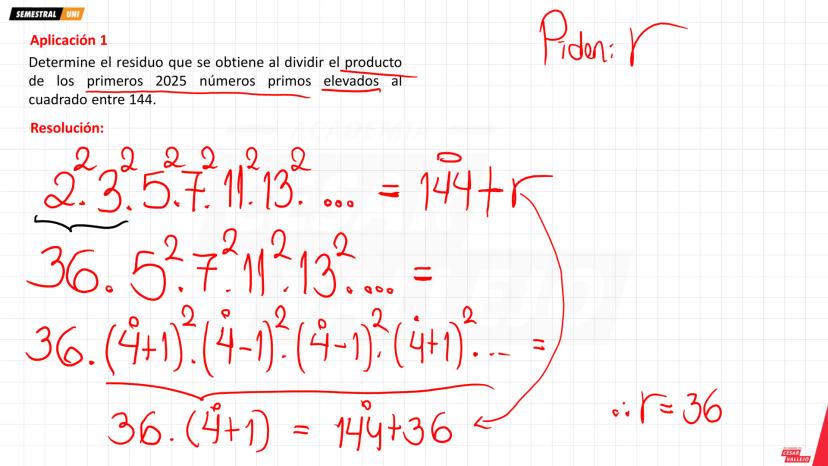 SEMESTRAL UNI
Piden: r
Aplicación 1
Determine el residuo que se obtiene al dividir el producto
de los primeros 2025 números primos elevados al
cuadrado entre 144.
Resolución:
2². 3². 5². 7². 11². 13². ... = 144° + r
36. 5². 7². 11². 13². .... =
36. (4° + 1)². (4° - 1)². (4° - 1)². (4° + 1)². ... =
36. (4° + 1) = 144° + 36
∴ r = 36
ACADEMIA
CESAR
VALLEJO